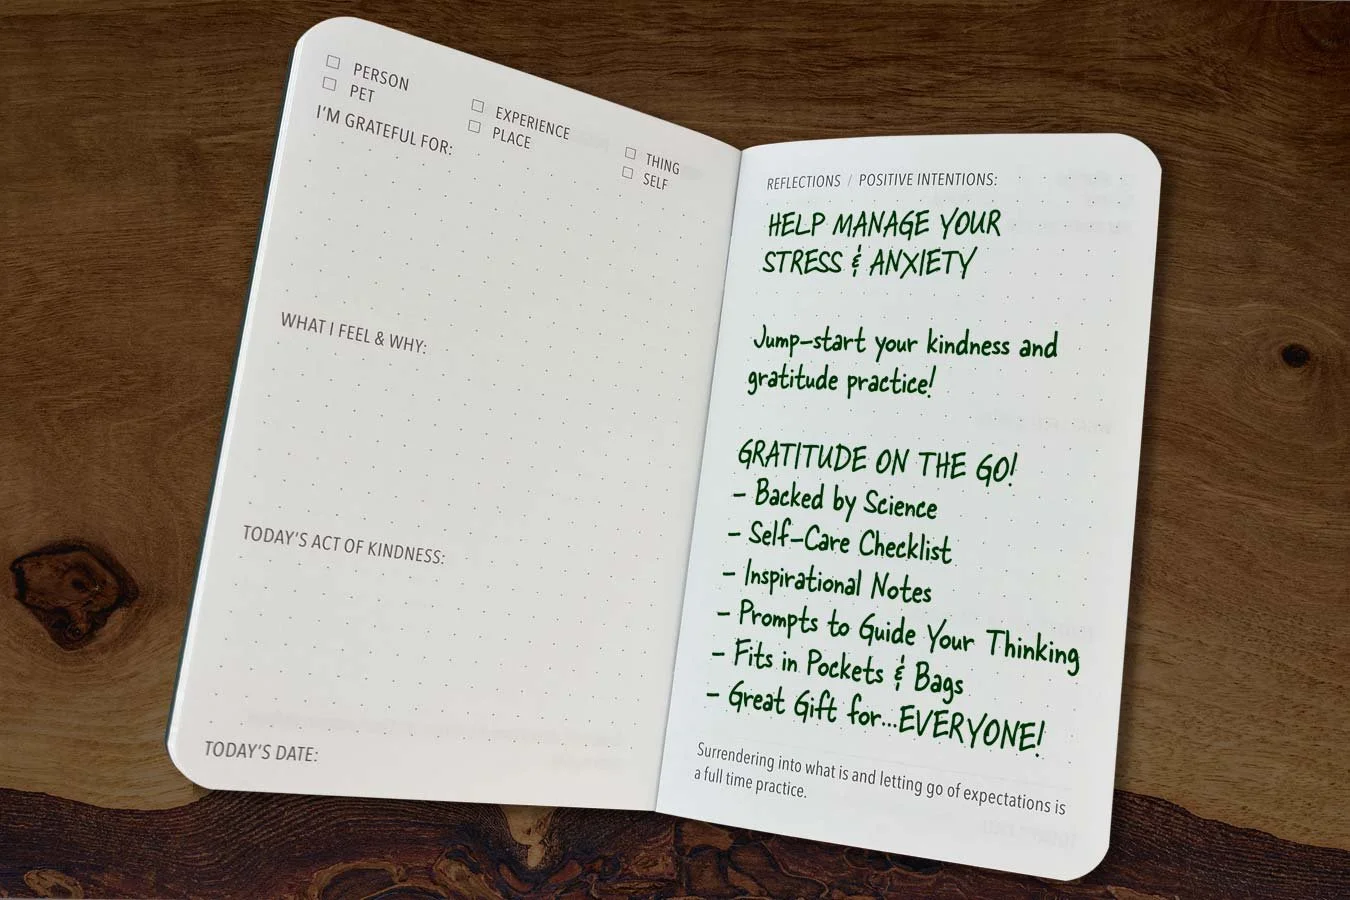 PERSON
PET
EXPERIENCE
PLACE
THING
SELF
I'M GRATEFUL FOR:
WHAT I FEEL & WHY:
TODAY'S ACT OF KINDNESS:
TODAY'S DATE:
REFLECTIONS / POSITIVE INTENTIONS:
HELP MANAGE YOUR
STRESS & ANXIETY
Jump-start your kindness and
gratitude practice!
GRATITUDE ON THE GO!
- Backed by Science
- Self-Care Checklist
- Inspirational Notes
- Prompts to Guide Your Thinking
- Fits in Pockets & Bags
- Great Gift for...EVERYONE!
Surrendering into what is and letting go of expectations is
a full time practice.